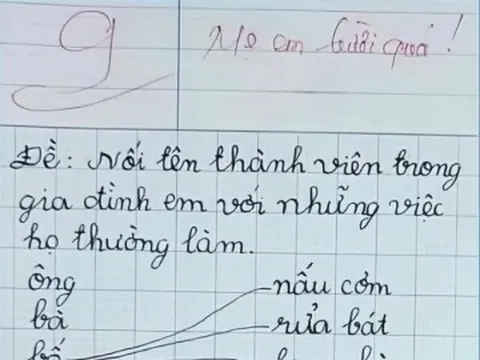 9
Mẹ em lười quá!
Đề: Nối tên thành viên trong
gia đình em với những việc
họ thường làm.
ông
nấu cơm
bà
rửa bát
bố